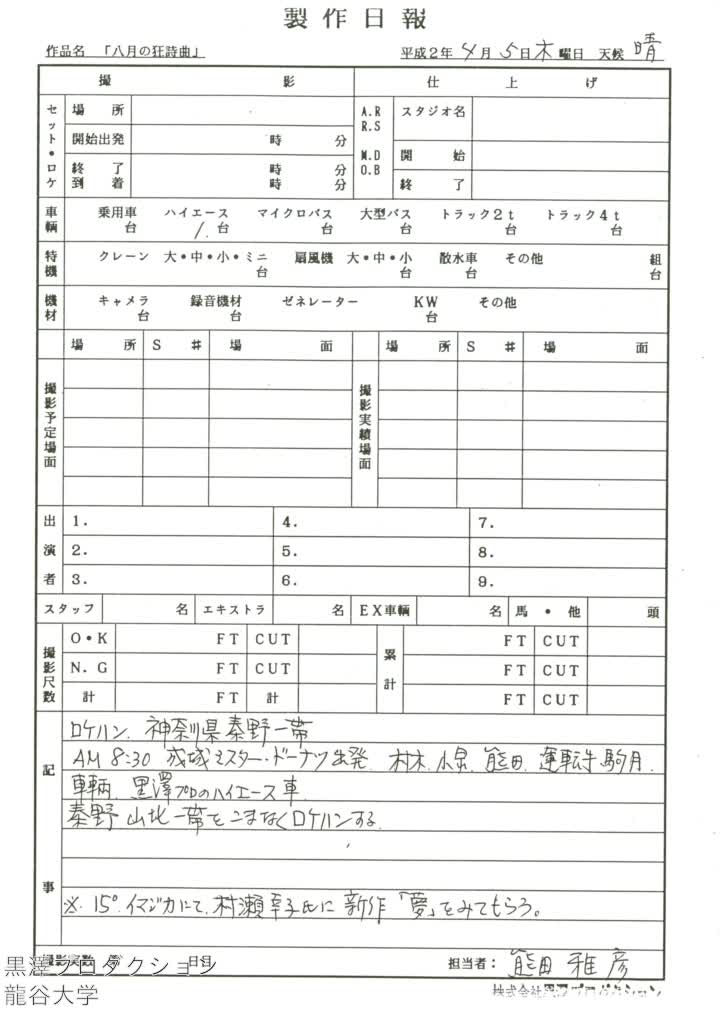 製作日報
作品名 「八月の狂詩曲」 平成2年4月5日木曜日 天候 晴
撮影 仕上げ
セット・ロケ 場所 A.R R.S スタジオ名
開始出発 時 分 M.D O.B 開始
終了 時 分 終了
到着 時 分
車輌 乗用車 台 ハイエース 1台 マイクロバス 台 大型バス 台 トラック2t 台 トラック4t 台
特機 クレーン 大・中・小・ミニ 台 扇風機 大・中・小 台 散水車 台 その他 組 台
機材 キャメラ 台 録音機材 台 ゼネレーター KW 台 その他
場所 S # 場面 場所 S # 場面
撮影予定場面 撮影実績場面
出演者 1. 4. 7.
2. 5. 8.
3. 6. 9.
スタッフ 名 エキストラ 名 EX車輌 名 馬・他 頭
撮影尺数 O・K FT CUT 累計 FT CUT
N.G FT CUT FT CUT
計 FT 計 FT CUT
記事
ロケハン. 神奈川県秦野一帯
AM 8:30 成城ミスタードーナツ出発. 村木. 小泉. 熊田. 運転手駒月.
車輌. 黒澤プロのハイエース車.
秦野 山北一帯をこまなくロケハンする.
※. 15°. イマジカにて. 村瀬幸子氏に新作「夢」をみてもらう。
撮影実数 日目
担当者: 熊田雅彦
株式会社黒澤プロダクション
黒澤プロダクション
龍谷大学